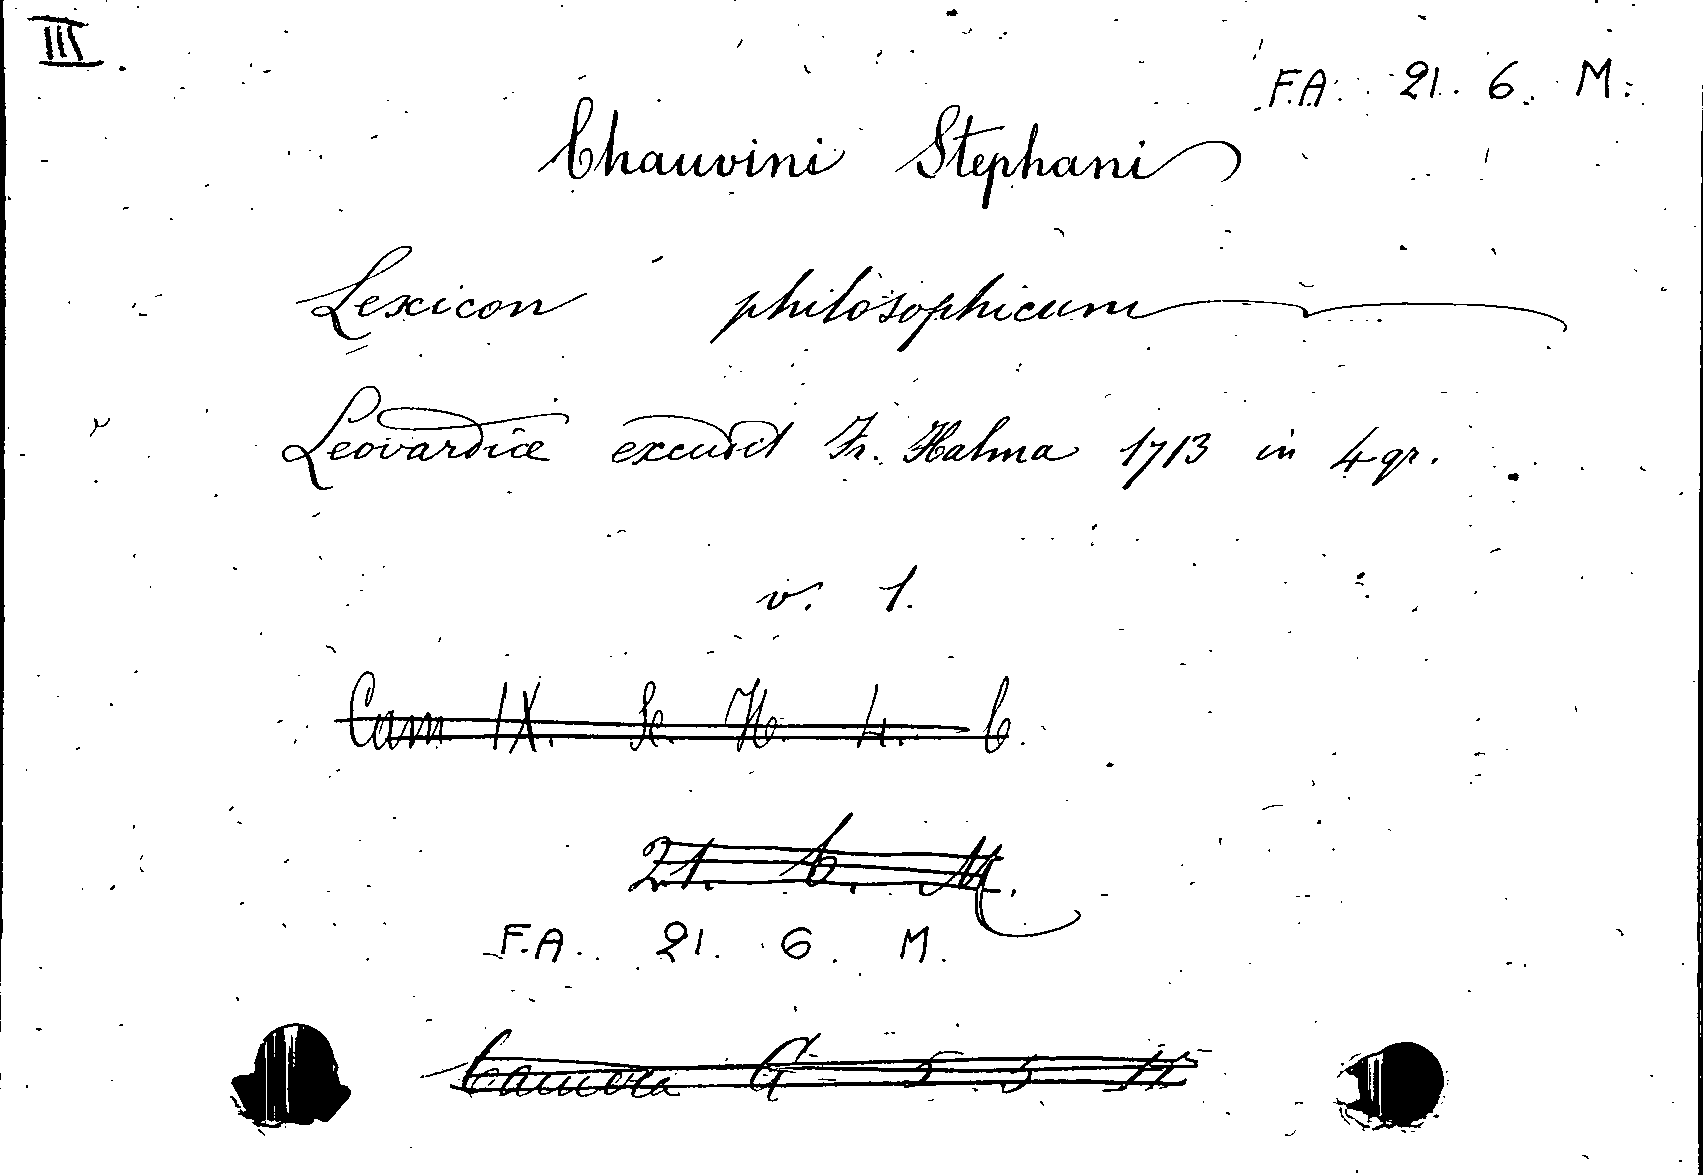 III.
F.A. 21. 6. M.
Chauvini Stephani
Lexicon philosophicum
Leovardiæ excudit Fr. Halma 1713 in 4 gr.
v. 1.
Cam IX. Sc. H. 4. C.
21. 6. M.
F.A. 21. 6. M.
Camera G 5 5